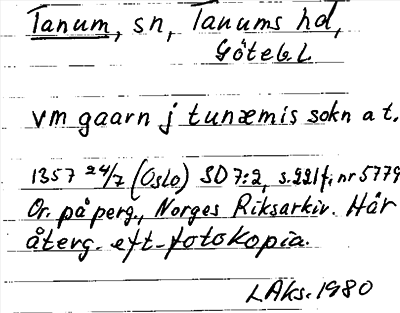 Tanum, sn, Tanums hd,
Göteb. L
vm gaarn j tunæmis sokn a t.
1357 24/7 (Oslo) SD 7:2, s. 221 f, nr 5779
Or. på perg., Norges Riksarkiv. Här
återg. eft. fotokopia.
LAks. 1980